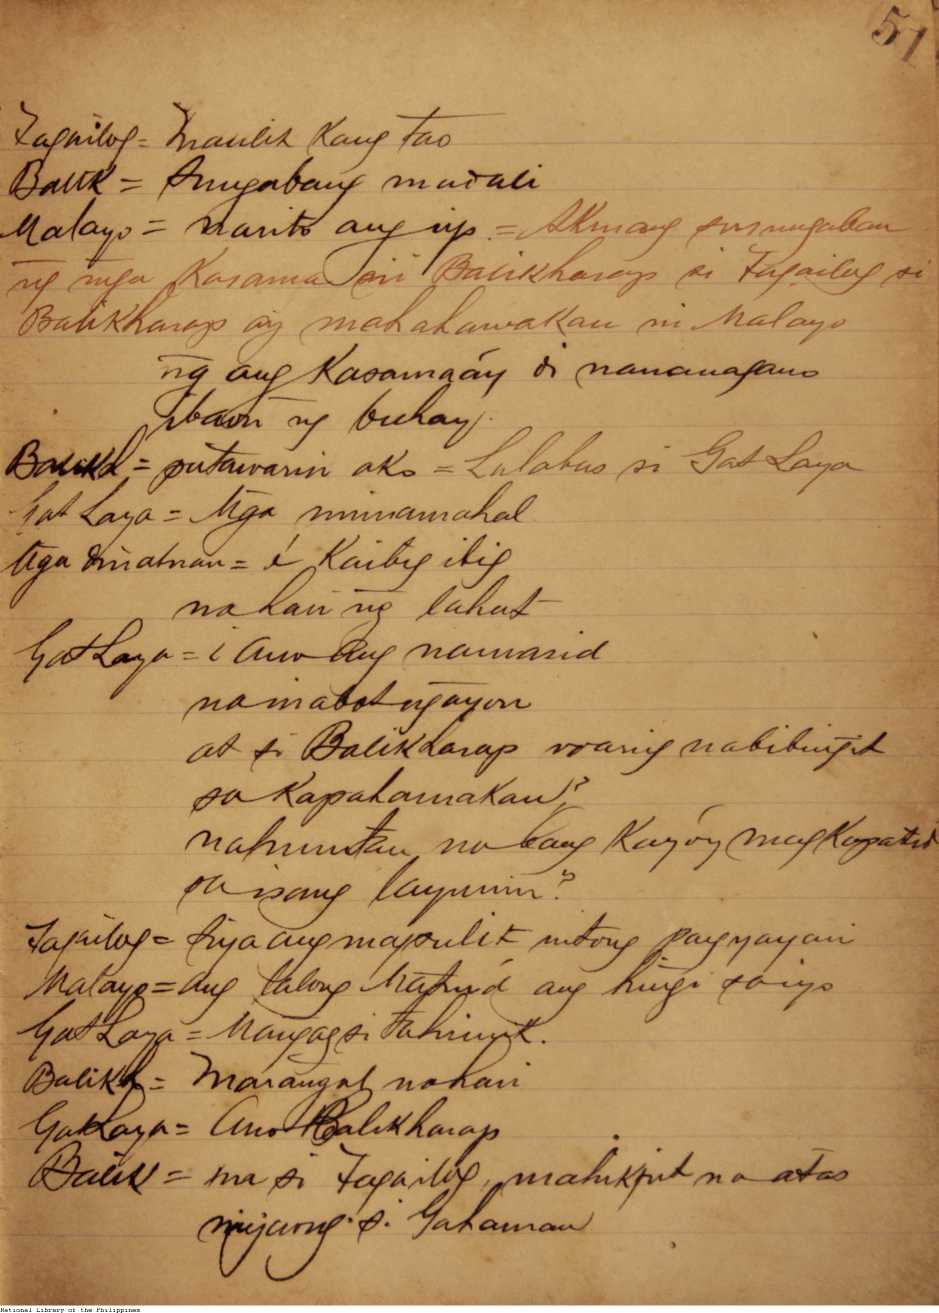 51
Tagailog = Maulit Kang tao
Balik = Sungabang madali
Malayo = narito ang = Akmang susungaban
ng mga Kasama ni Balikharap si Tagailog si
Balikharap ay mahahawakan ni Malayo
ng ang Kasamaáy di nananagano
ibaon ng buhay.
Balikh = patawarin ako = Lalabas si Gat Laya
Gat Laya = Mga minamahal
Mga dinatnan = Kaibig ibig
na hari ng lahat
GatLaya = ¿ Ano ang namasid
na inabot ngayon
at si Balikharap waring nabibingit
sa Kapahamakan?
na bang Kayóy magKapatid
sa isang layunin?
Tagailog = Siya ang mapulit nitong pangyayari
Malayo = ang talong Matuid ang hingi saiyo
GatLaya = Mangagsi tahimik.
Balikh = Marangal na hari
GatLaya = Ano Balikharap
Balik = na si Tagailog, mahikpit na atas
niyaong si Gahaman
National Library of the Philippines